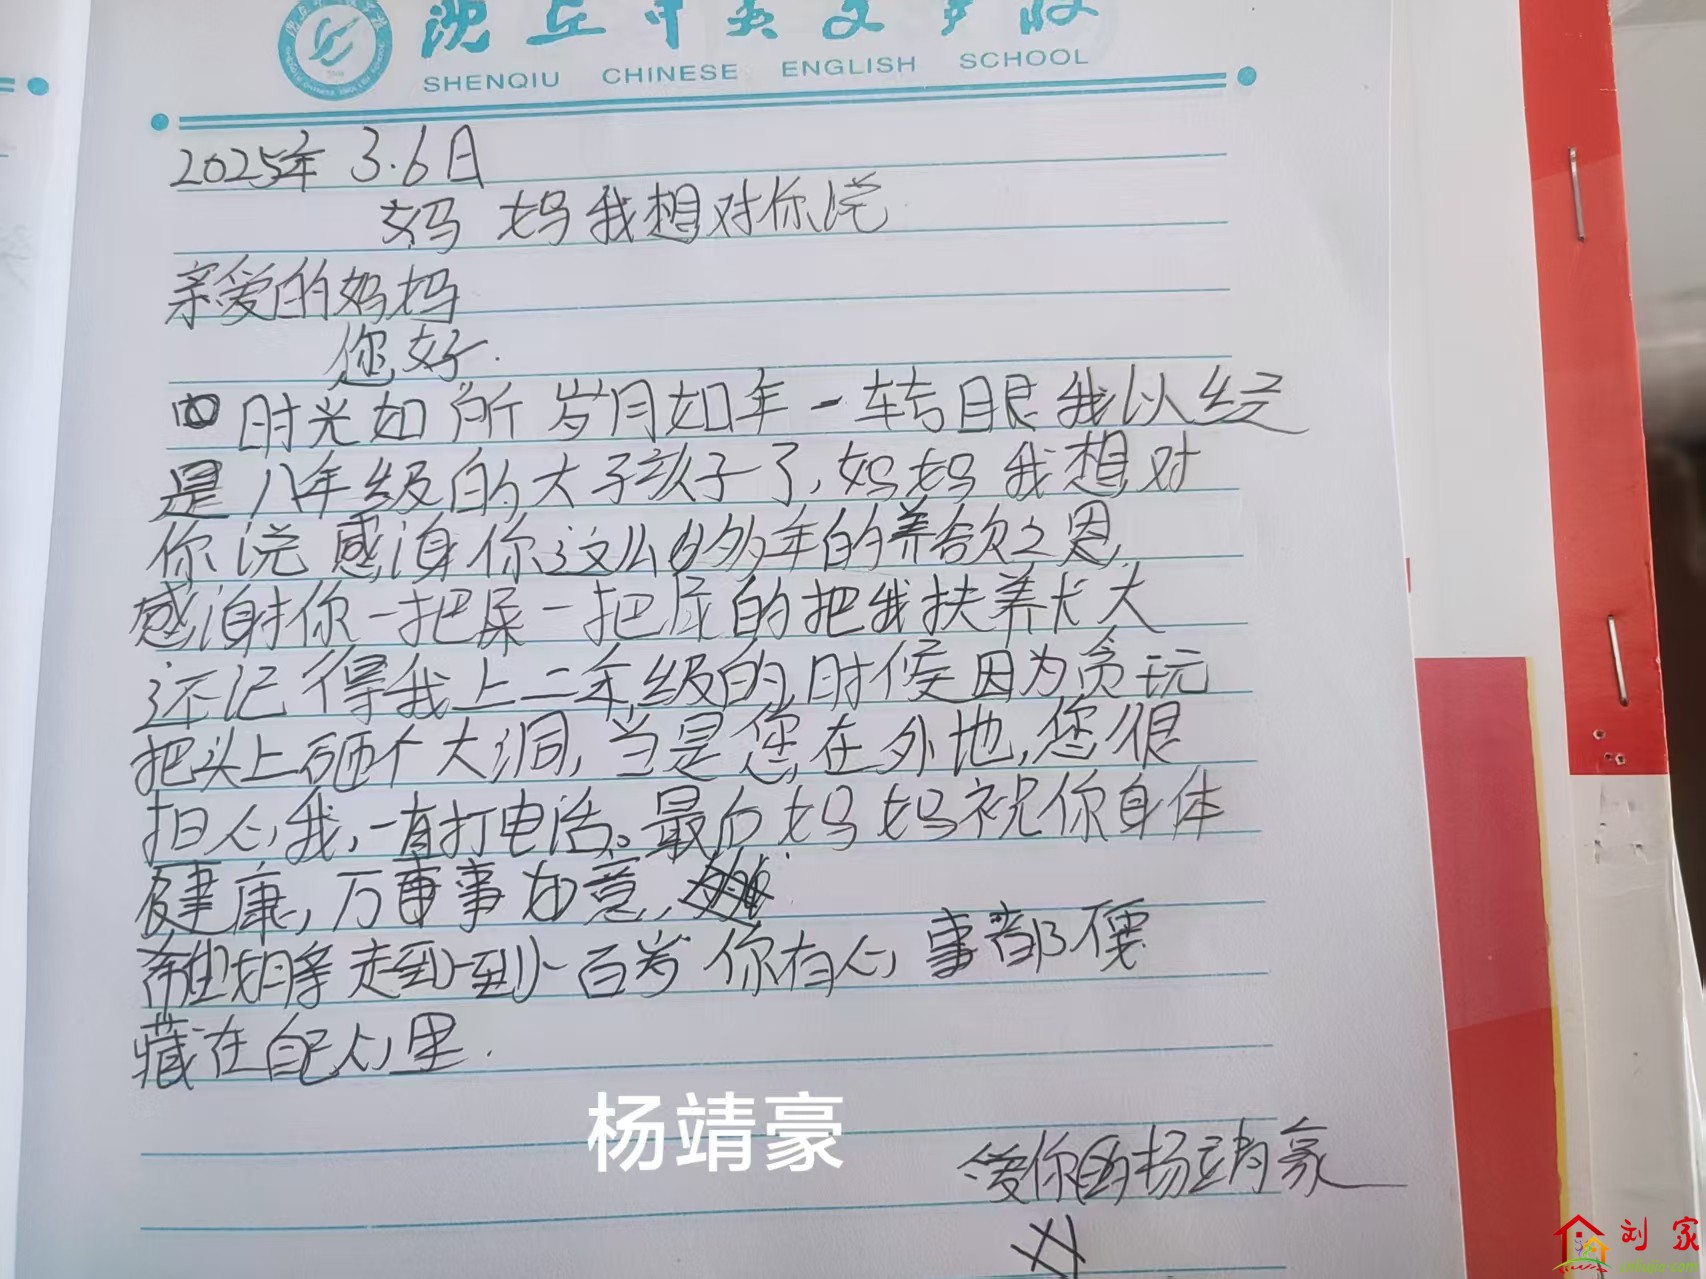 沈丘中英文学校
SHENQIU CHINESE ENGLISH SCHOOL
2025年 3.6日
妈 妈我想对你说
亲爱的妈妈
您好.
时光如 所 岁月如年 一转眼我以经
是八年级的大子孩子了,妈妈我想对
你说感谢你这么多年的养育之恩,
感谢你一把屎一把尿的把我扶养长大
还记得我上二年级的时候因为贪玩
把头上砸个大洞,当是您在外地,您很
担心我,一直打电话。最后妈妈祝你身体
健康,万事事如意,
母亲走到一百岁 你有心事都
藏在自己心里.
杨靖豪
爱你的杨靖豪
刘家